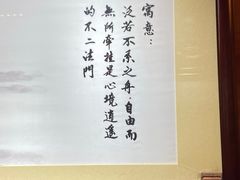 寓意：
泛若不系之舟，自由而
無所牽挂是心境逍遙
的不二法門